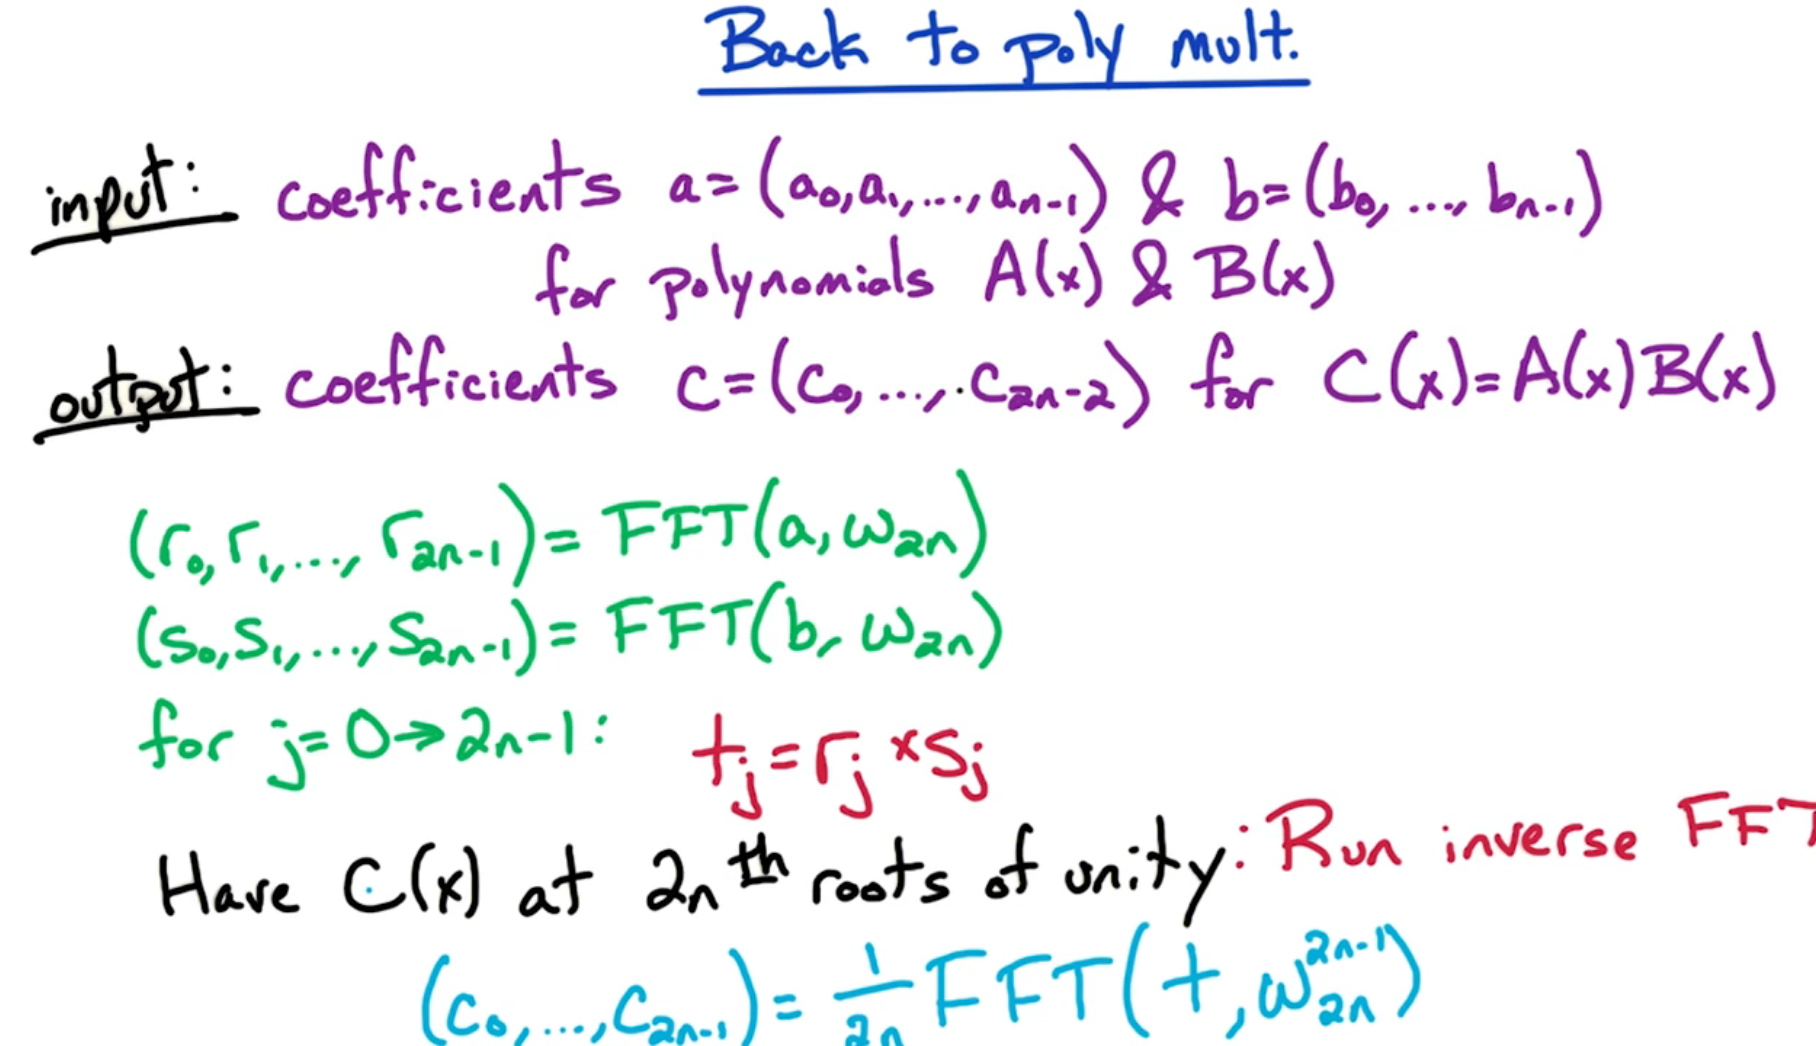 Back to poly mult.
input: coefficients a=(a₀,a₁,...,aₙ₋₁) & b=(b₀,...,bₙ₋₁)
for polynomials A(x) & B(x)
output: coefficients c=(c₀,...,c₂ₙ₋₂) for C(x)=A(x)B(x)
(r₀,r₁,...,r₂ₙ₋₁)= FFT(a,ω₂ₙ)
(s₀,s₁,...,s₂ₙ₋₁)= FFT(b,ω₂ₙ)
for j=0→2n-1: tⱼ=rⱼ×sⱼ
Have C(x) at 2nᵗʰ roots of unity: Run inverse FFT
(c₀,...,c₂ₙ₋₁)= 1/2n FFT(t,ω₂ₙ²ⁿ⁻¹)